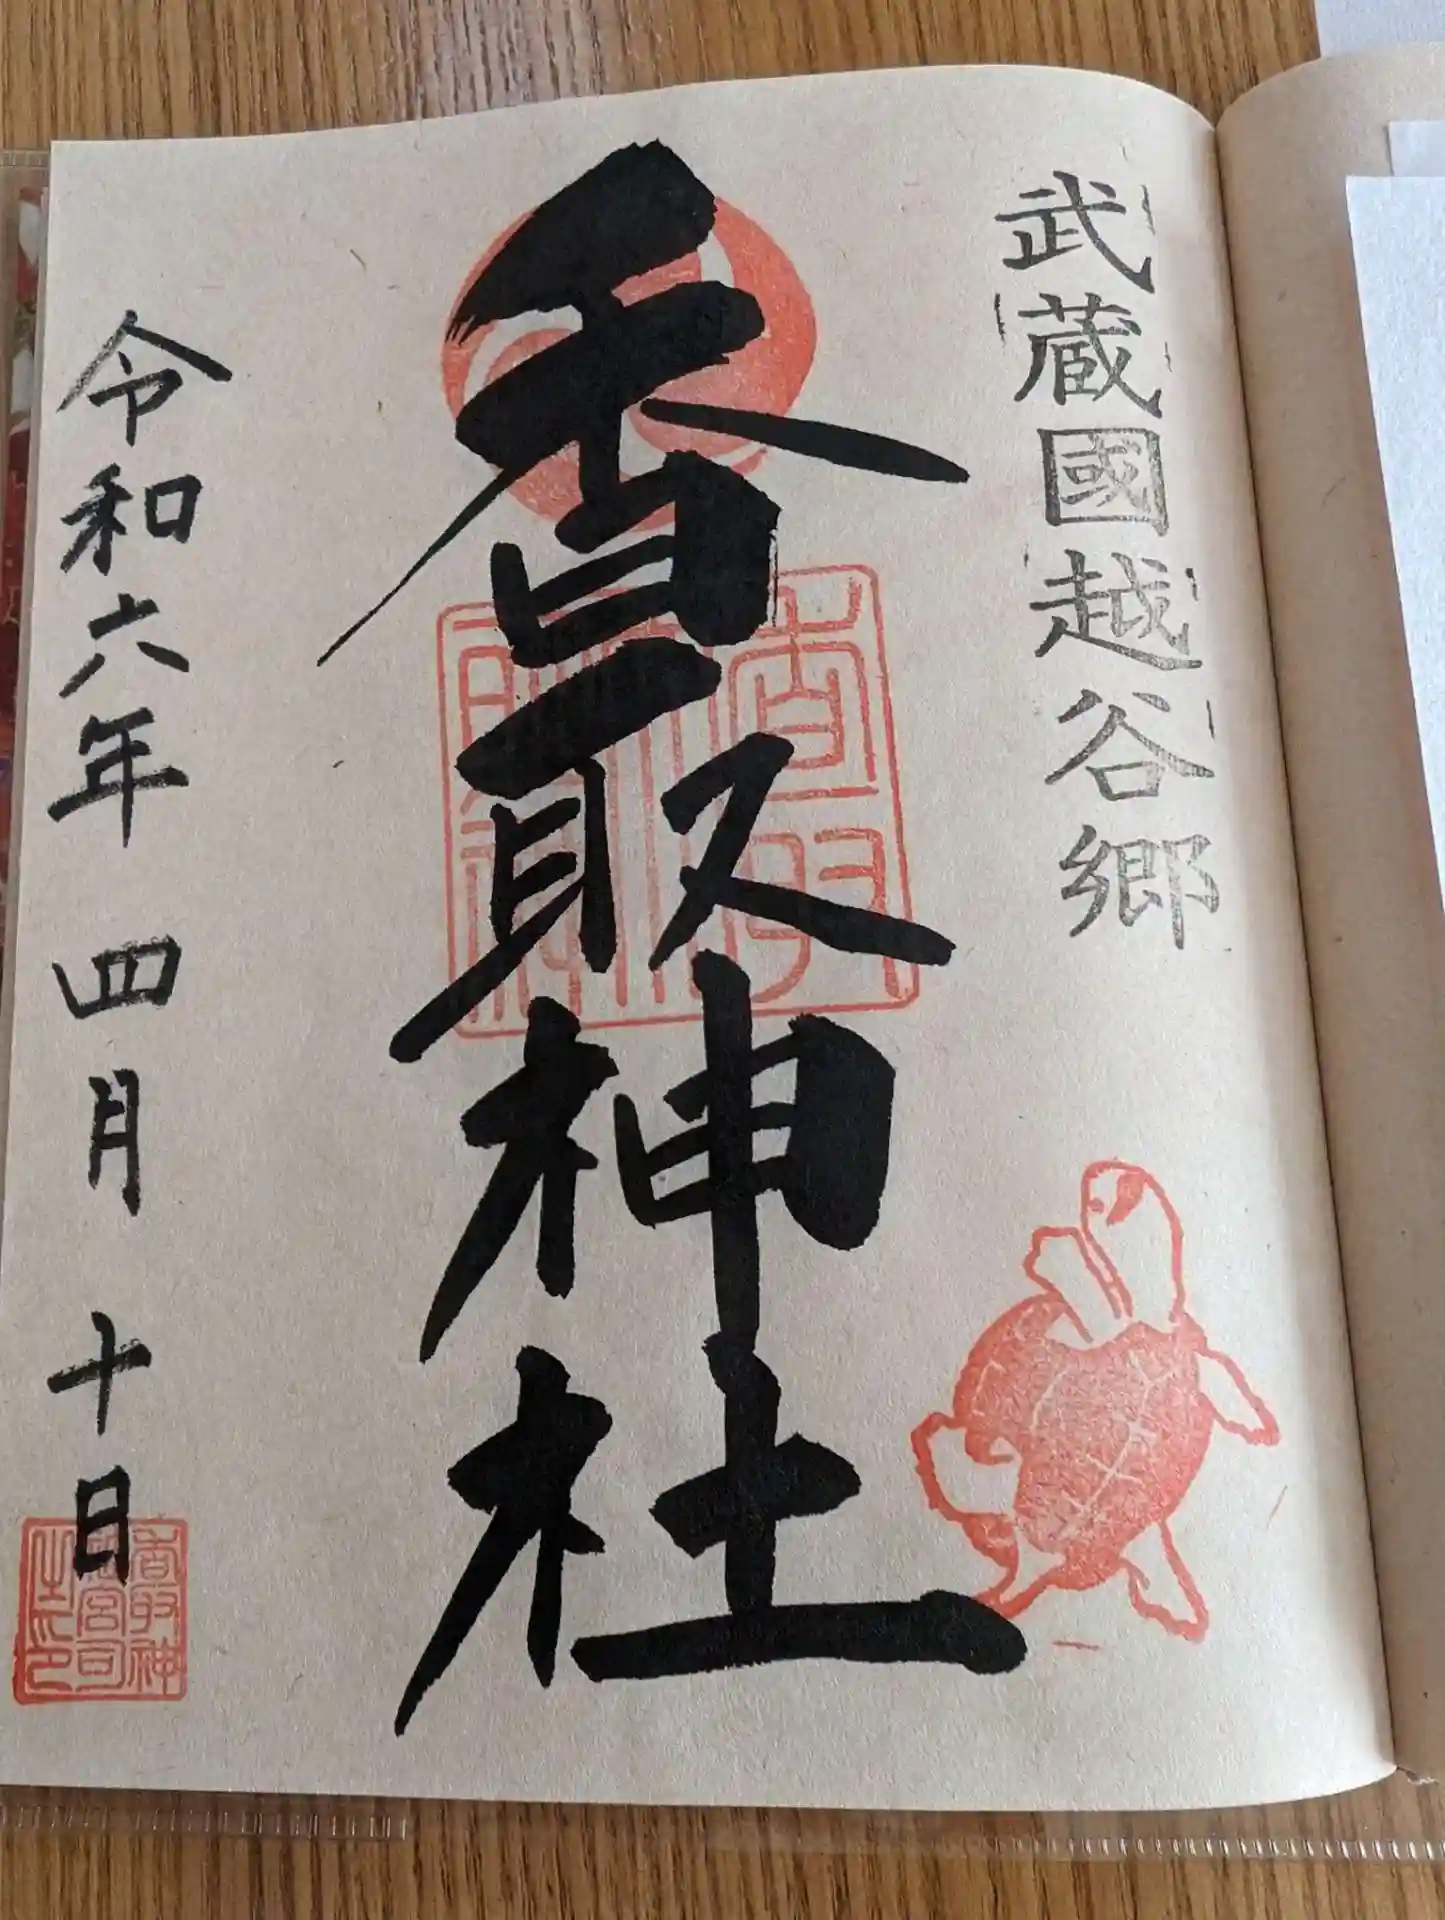 武蔵國越谷郷
香取神社
令和六年四月十日
香取神
宮司
之印